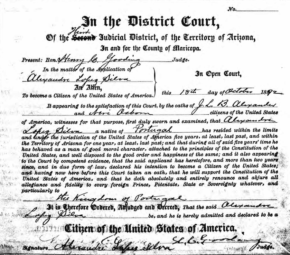 No.
In the District Court,
Of the Third Judicial District, of the Territory of Arizona,
In and for the County of Maricopa.
Present: Hon. Henry C. Gooding Judge.
In the matter of the application of
Alexandre Lopez Silva In Open Court,
An Alien, this 13th day of October 1892
To become a Citizen of the United States of America.
It appearing to the satisfaction of this Court, by the oaths of J. L. B. Alexander
and citizens of the United States
of America, witnesses for that purpose, first duly sworn and examined, that Alexandre
Lopez Silva a native of Portugal has resided within the limits
and under the jurisdiction of the United States of America five years, at least, last past, and within
the Territory of Arizona for one year, at least, last past; and that during all of said five years' time he
has behaved as a man of good moral character, attached to the principles of the Constitution of the
United States, and well disposed to the good order and happiness of the same; and it also appearing
to the Court by competent evidence, that the said applicant has heretofore, and more than two years
since, and in due form of law, declared his intention to become a Citizen of the United States;
and having now here before this Court taken an oath, that he will support the Constitution of the
United States of America, and that he doth absolutely and entirely renounce and abjure all
allegiance and fidelity to every foreign Prince, Potentate, State or Sovereignty whatever, and
particularly to
the Kingdom of Portugal
It is Therefore Ordered, Adjudged and Decreed, That the said Alexandre
Lopez Silva be, and he is hereby admitted and declared to be a
Citizen of the United States of America.
Signature Alexandre Lopez Silva Judge.